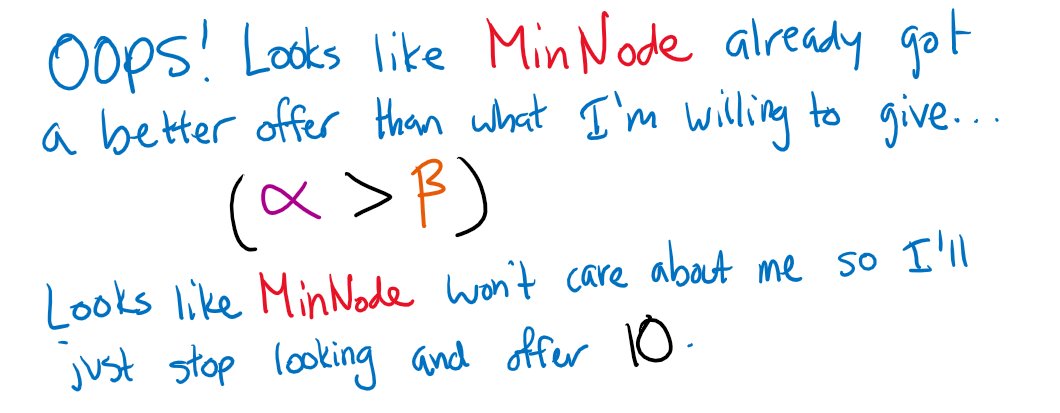 OOPS! Looks like MinNode already got
a better offer than what I'm willing to give...
(α > β)
Looks like MinNode won't care about me so I'll
just stop looking and offer 10.